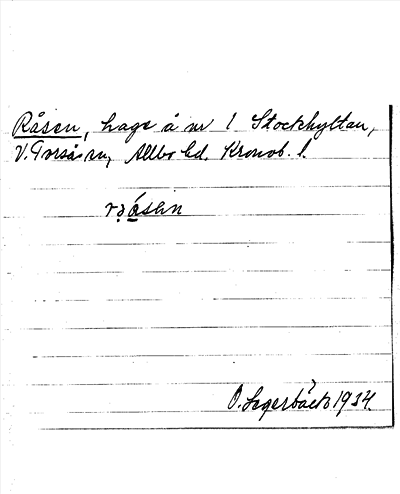 Råsen, hage å nr 1 Stockhyltan,
V. Torsås sn, Allbo hd, Kronob. l.
O. Segerbäck 1934.